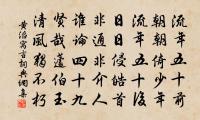 流年五十前
朝朝倚少年
流年五十後
日日侵皓首
非通非介人
誰論四十九
賢哉蘧伯玉
清風獨不朽
黄滔寓言詞典網集